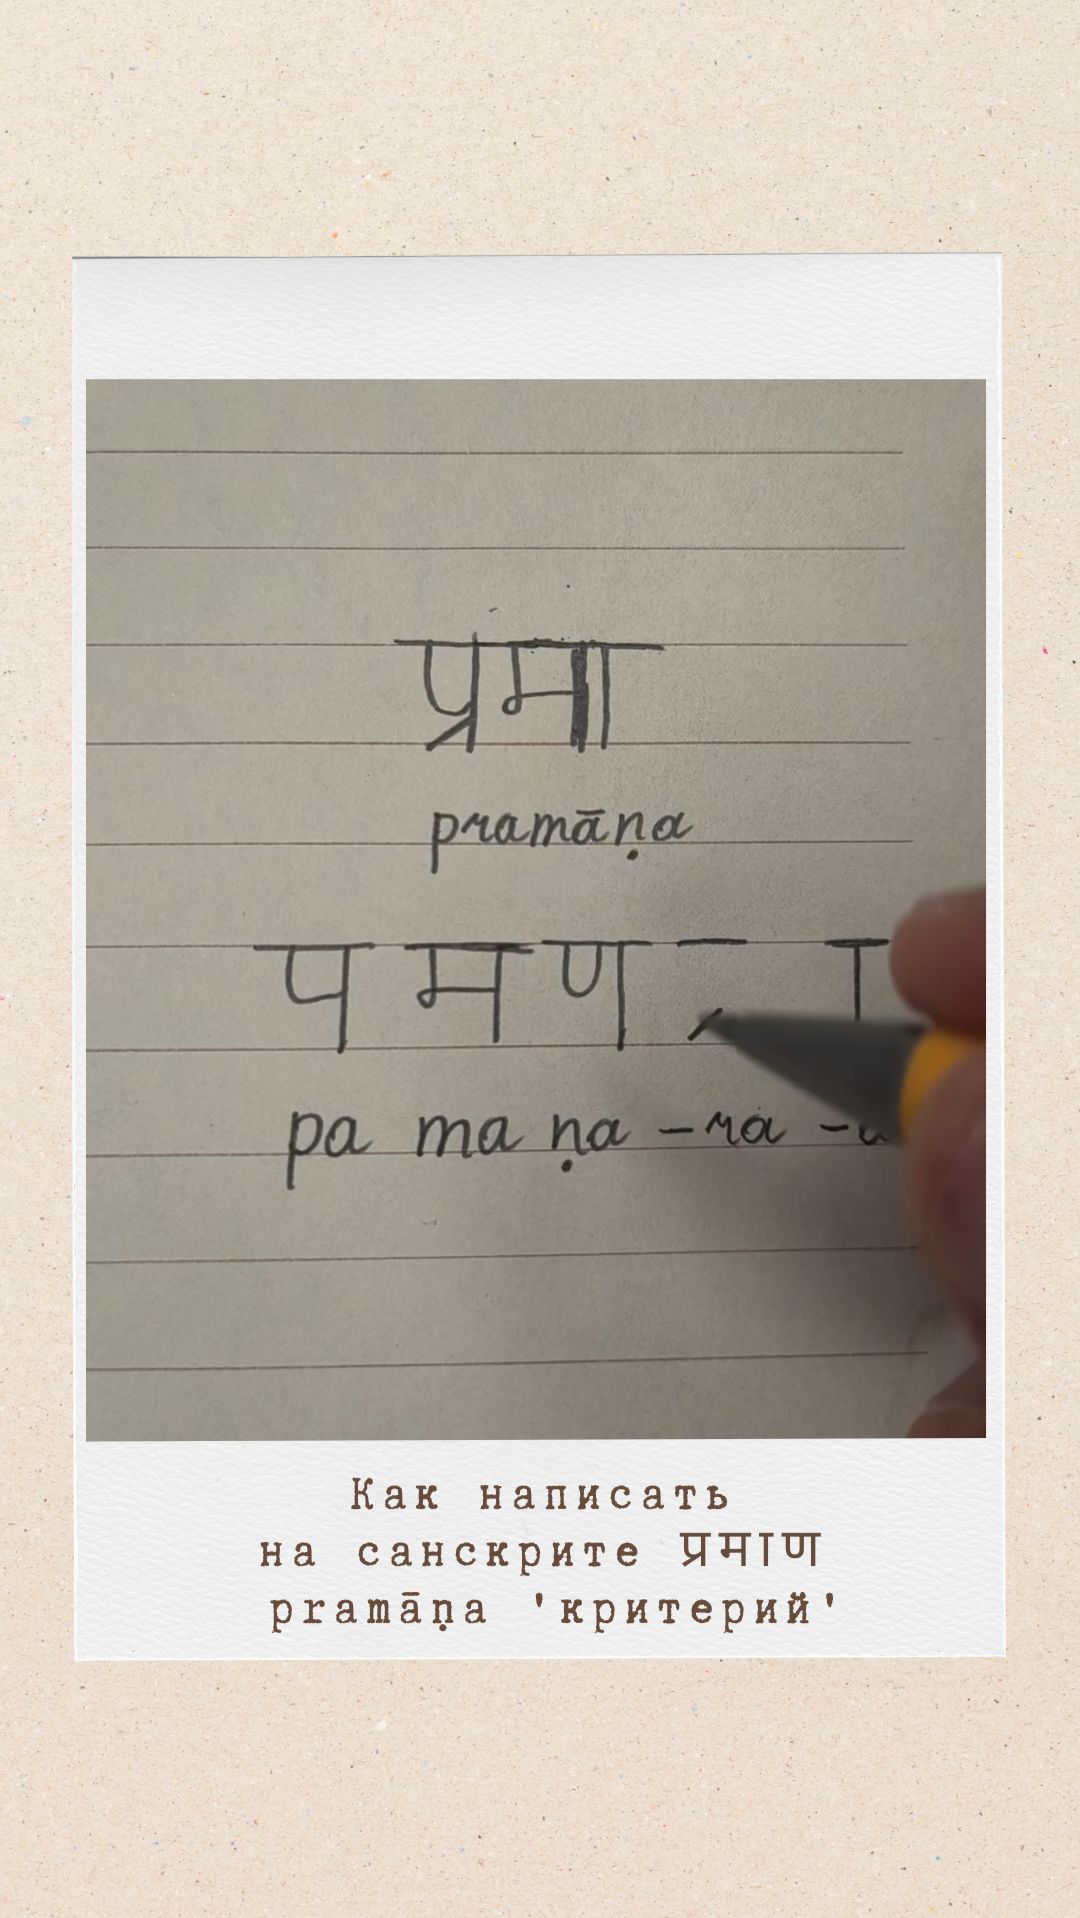 प्रमा
pramāṇa
प म ण ् र ा
pa ma ṇa -ra
Как написать
на санскрите प्रमाण
pramāṇa 'критерий'